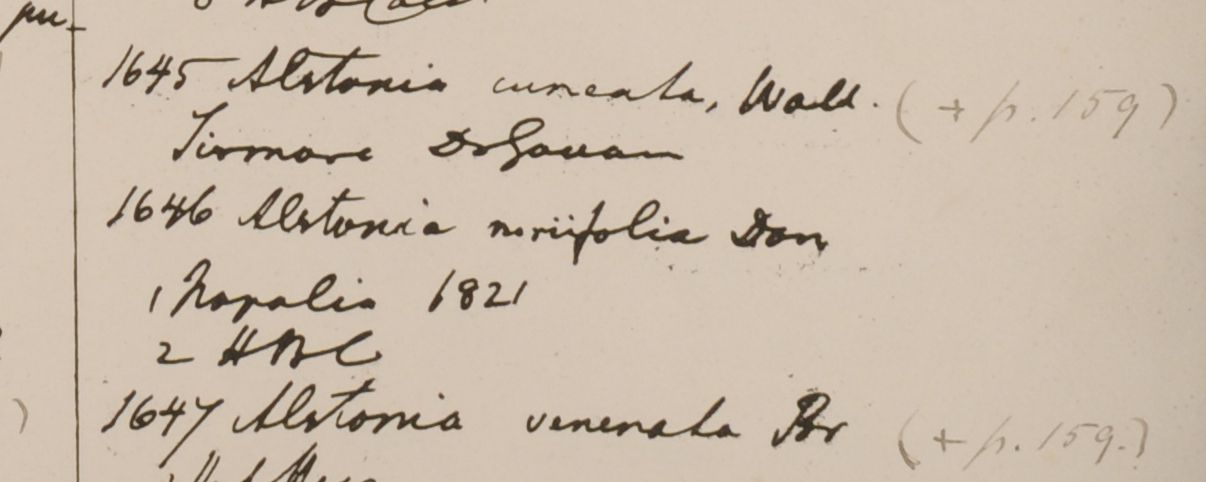 pu-
1645 Alstonia cuneata, Wall. (+ p. 159)
1646 Alstonia neriifolia Don
1 Napalia 1821
2 HBC
1647 Alstonia venenata Br (+ p. 159.)